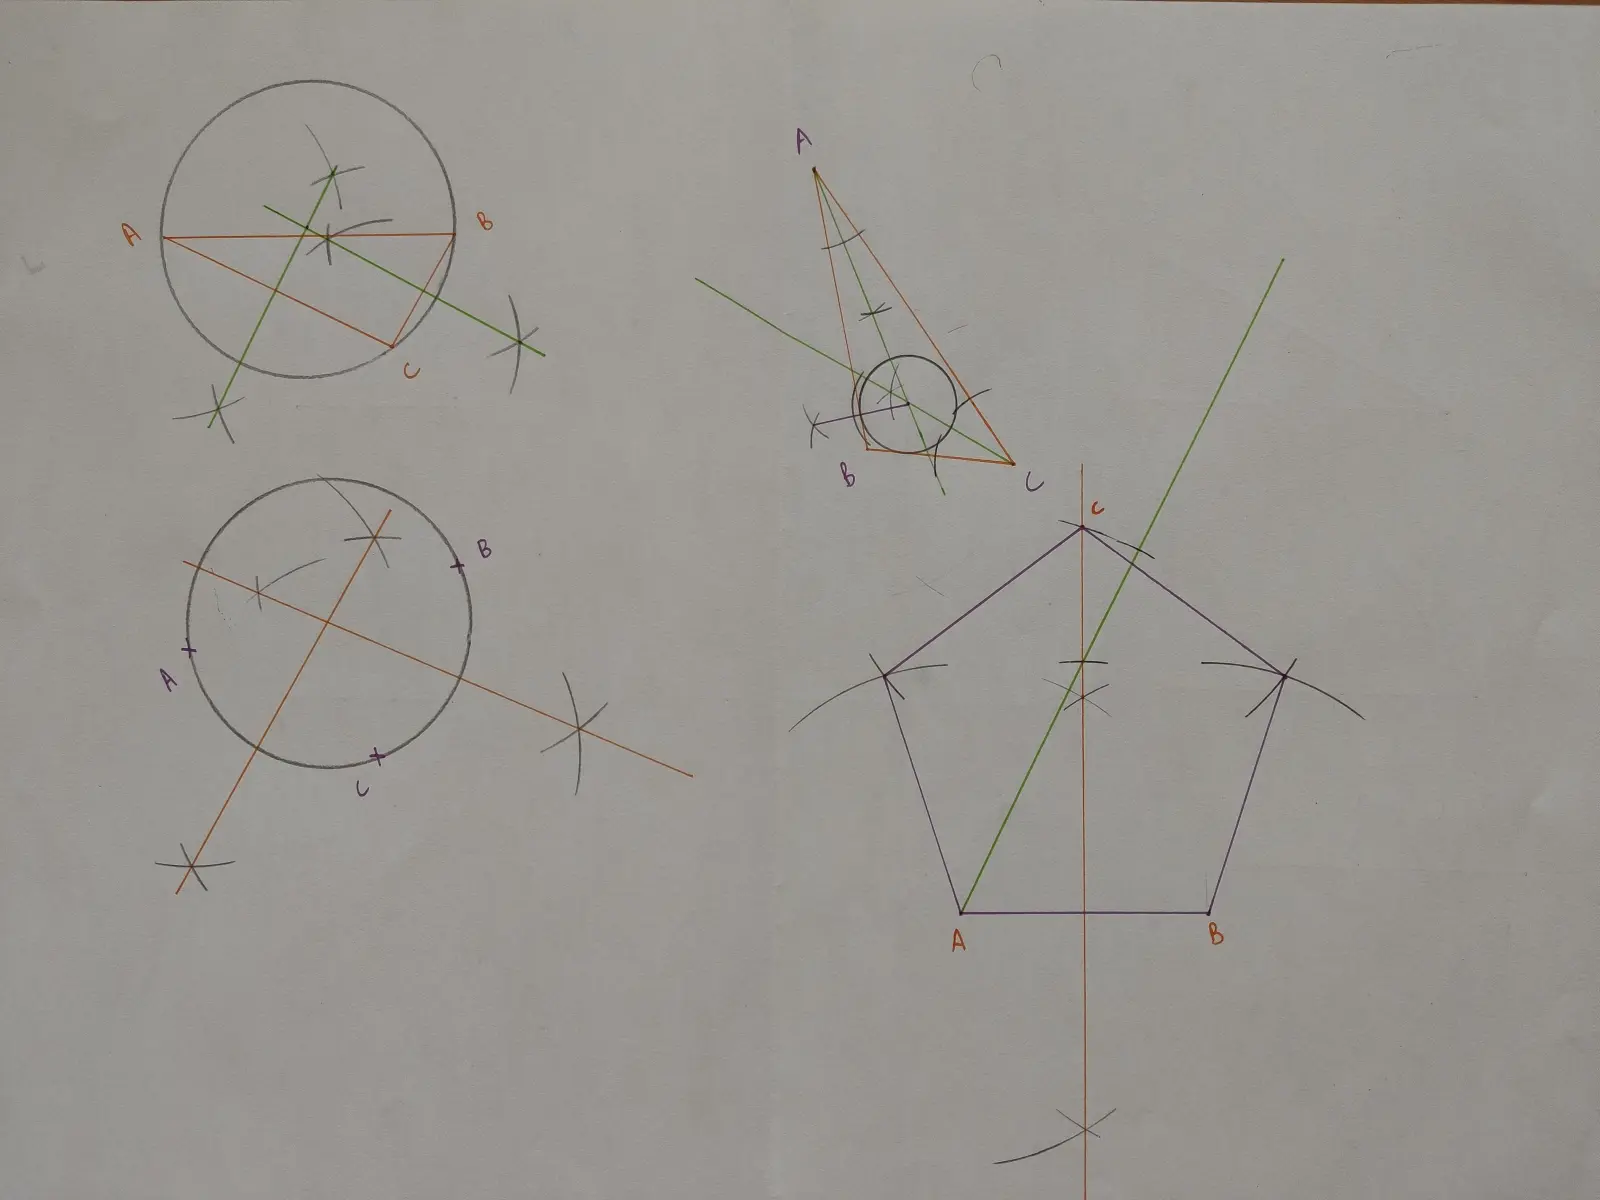 A
B
C
A
B
C
A
B
C
C
A
B